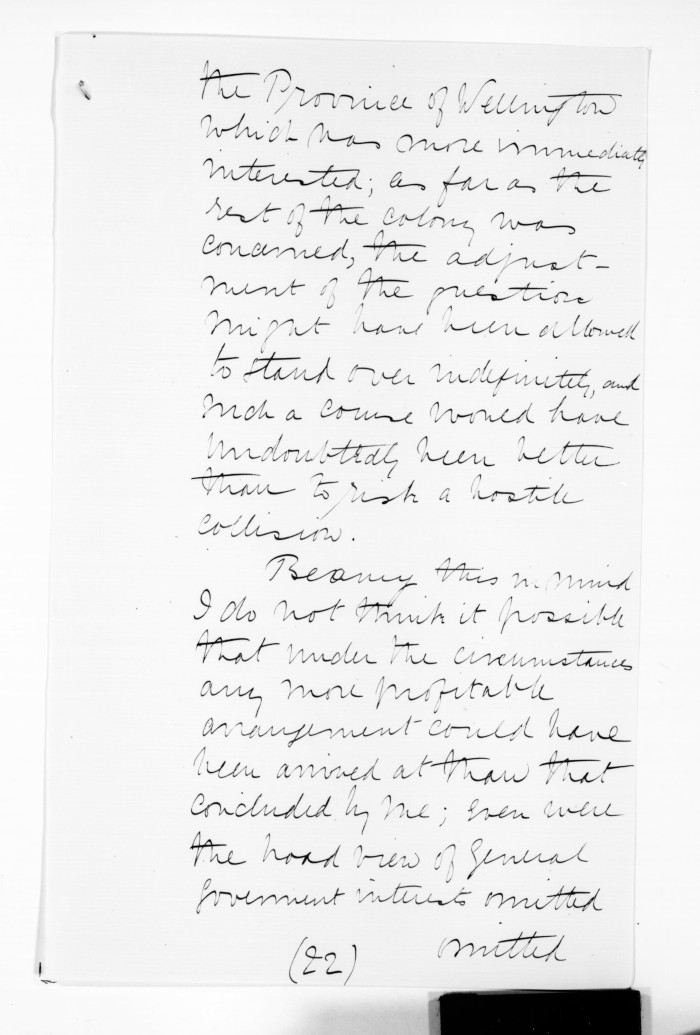 the Province of Wellington
which was more immediately
interested; as far as the
rest of the colony was
concerned, the adjust-
ment of the question
might have been allowed
to stand over indefinitely, and
such a course would have
undoubtedly been better
than to risk a hostile
collision.
Bearing this in mind
I do not think it possible
that under the circumstances
any more profitable
arrangement could have
been arrived at than that
concluded by me; even were
the broad view of General
Government interests omitted
(22) omitted